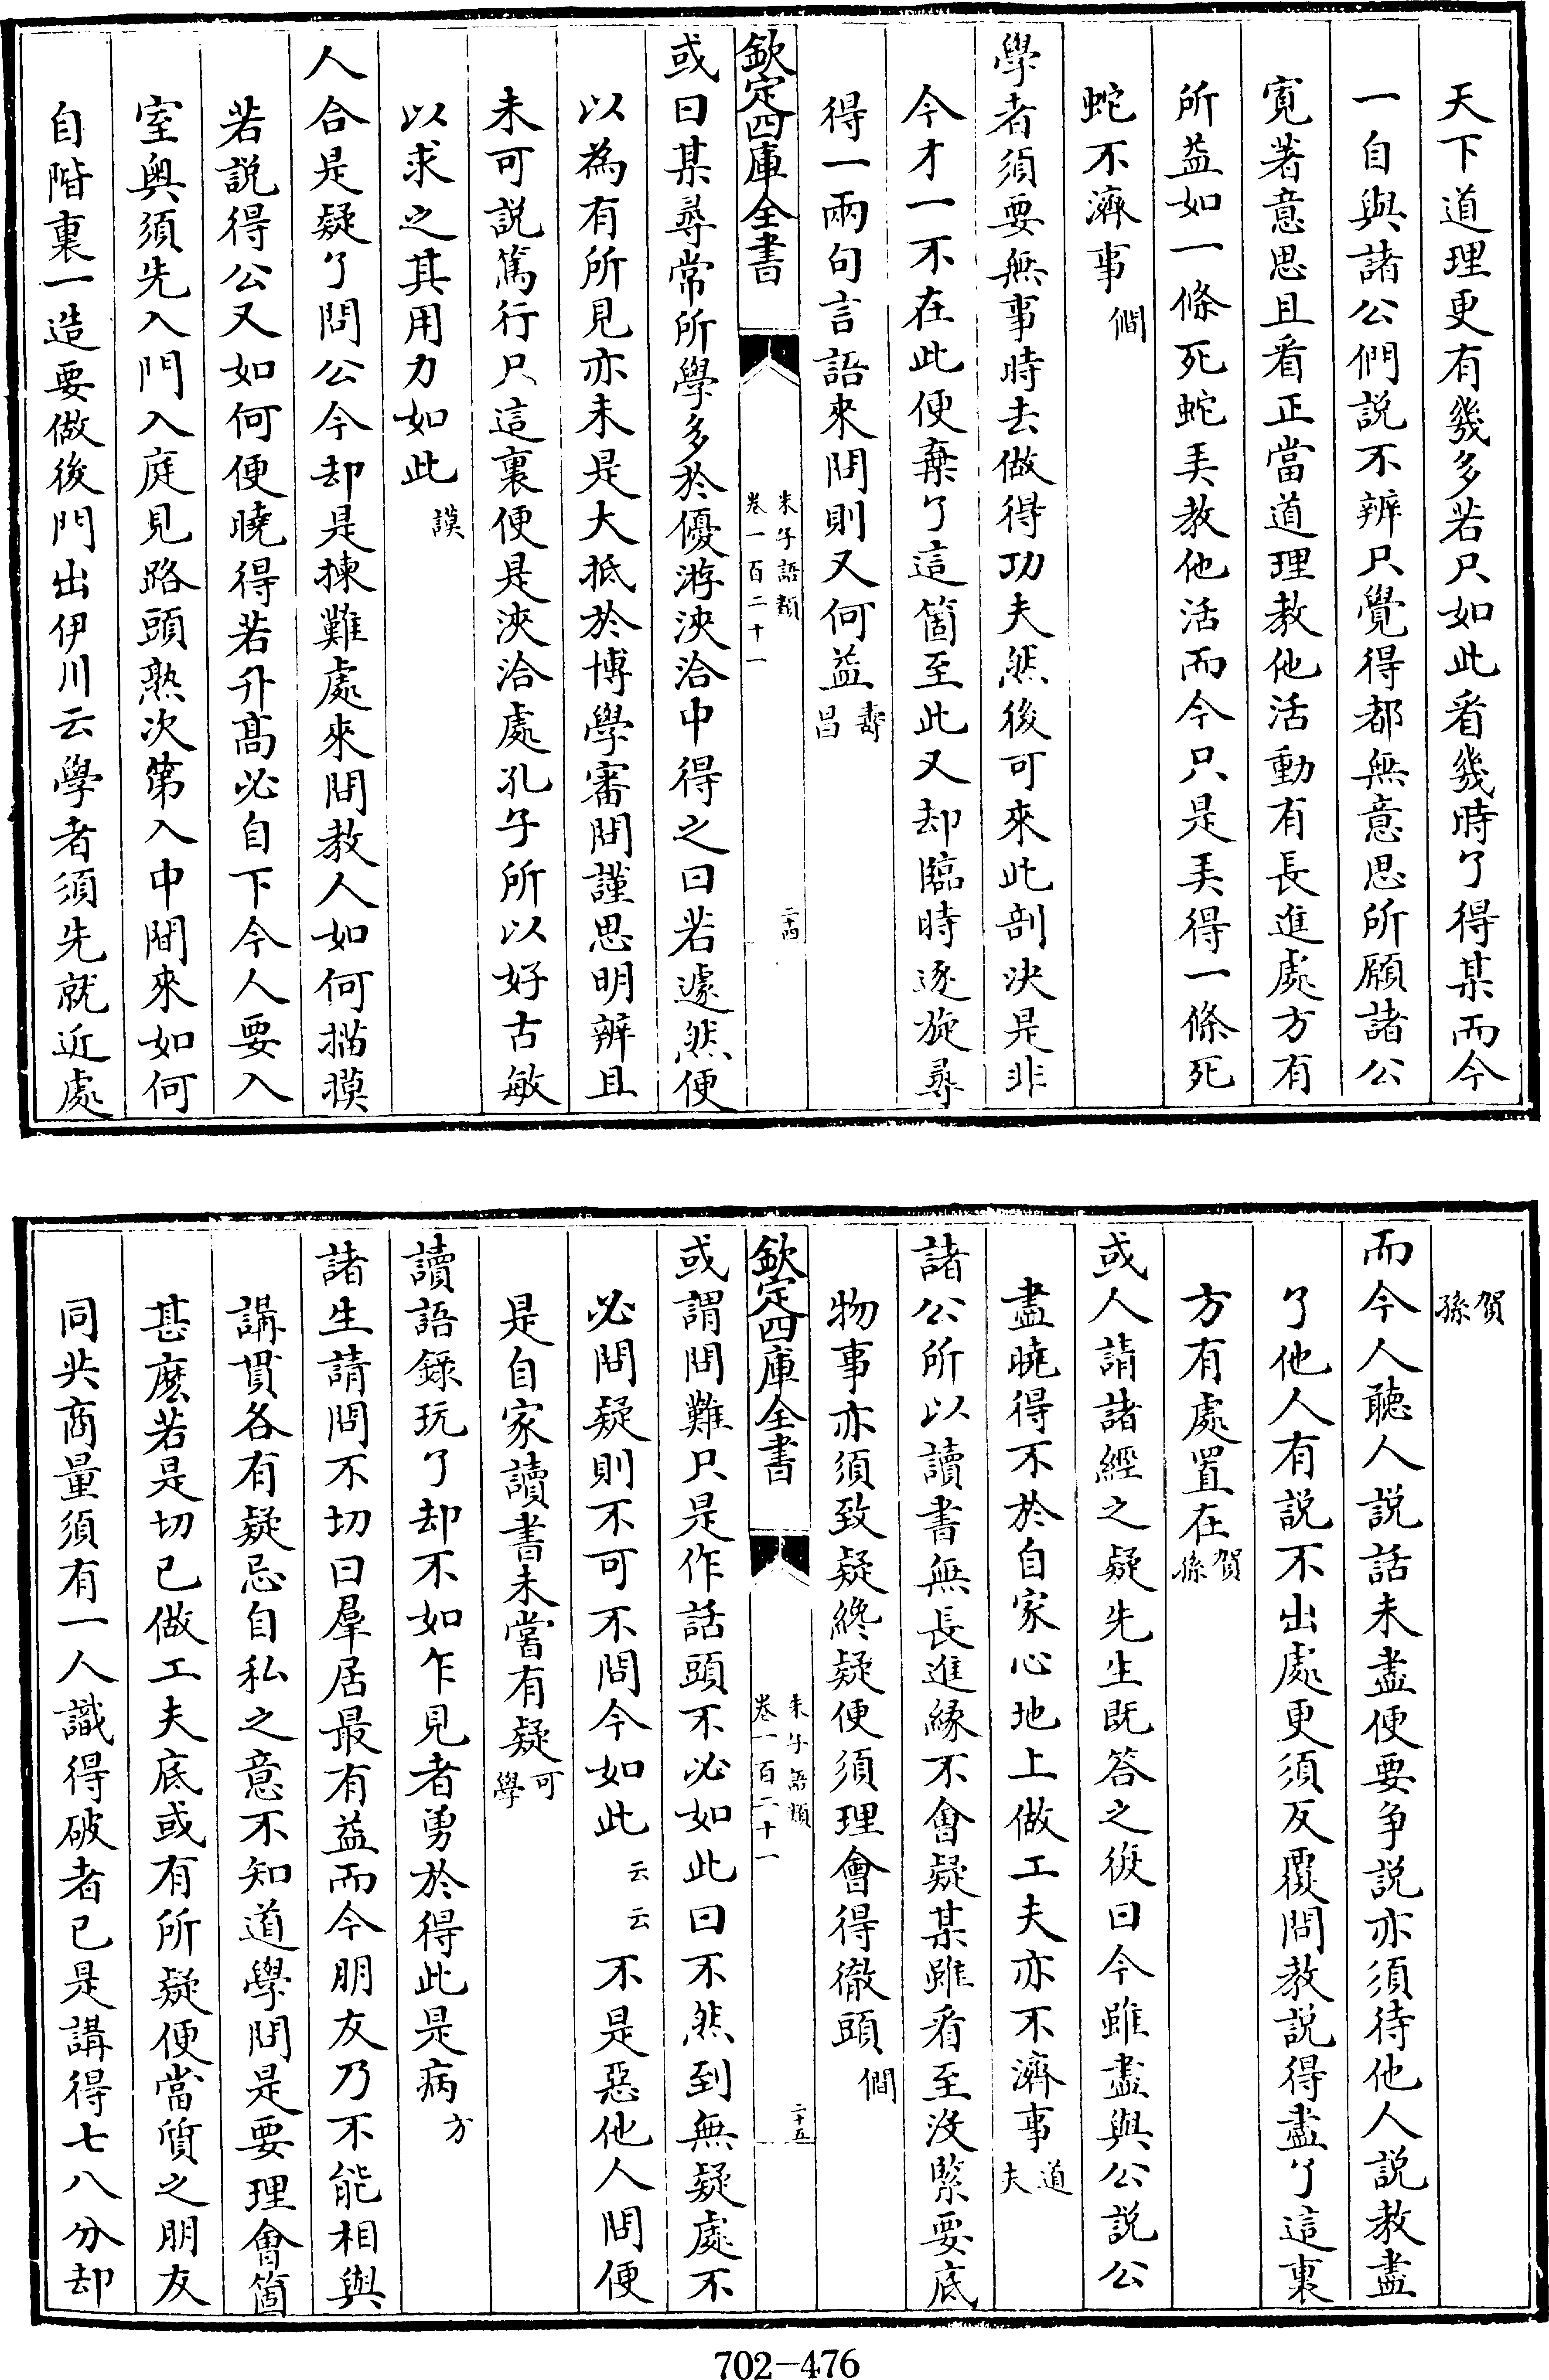 天下道理更有幾多若只如此看幾時了得某而今
一自與諸公們説不辨只覺得都無意思所願諸公
寛著意思且看正當道理教他活動有長進處方有
所益如一條死蛇弄教他活而今只是弄得一條死
蛇不濟事僩
學者須要無事時去做得功夫然後可來此剖決是非
今才一不在此便棄了這箇至此又却臨時逐旋尋
得一兩句言語來問則又何益壽昌
欽定四庫全書
朱子語類
卷一百二十一
二十四
或曰某尋常所學多於優游浹洽中得之曰若遽然便
以為有所見亦未是大抵於博學審問謹思明辨且
未可説篤行只這裏便是浹洽處孔子所以好古敏
以求之其用力如此謨
人合是疑了問公今却是揀難處來問教人如何描摸
若説得公又如何便曉得若升髙必自下今人要入
室奥須先入門入庭見路頭熟次第入中間來如何
自階裏一造要做後門出伊川云學者須先就近處
賀孫
而今人聽人説話未盡便要爭説亦須待他人説教盡
了他人有説不出處更須反覆問教説得盡了這裏
方有處置在賀孫
或人請諸經之疑先生既答之復曰今雖盡與公説公
盡曉得不於自家心地上做工夫亦不濟事道夫
諸公所以讀書無長進縁不會疑某雖看至没緊要底
物事亦須致疑終疑便須理會得徹頭僩
欽定四庫全書
朱子語類
卷一百二十一
二十五
或謂問難只是作話頭不必如此曰不然到無疑處不
必問疑則不可不問今如此云云不是惡他人問便
是自家讀書未嘗有疑可學
讀語錄玩了却不如乍見者勇於得此是病方
諸生請問不切曰羣居最有益而今朋友乃不能相與
講貫各有疑忌自私之意不知道學問是要理會箇
甚麽若是切已做工夫底或有所疑便當質之朋友
同共商量須有一人識得破者已是講得七八分却
702-476